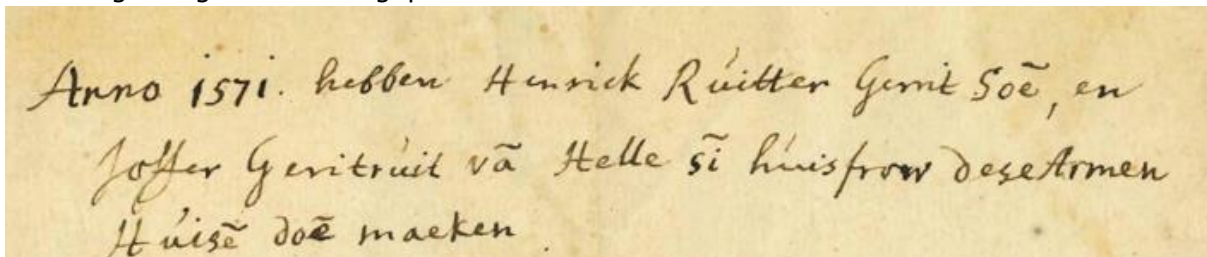 Anno 1571. hebben Henrick Rúitter Gerrit Soē, en
Joffer Geritrúit vā Helle sī húisfrow dese Armen
Húisē doē maeken